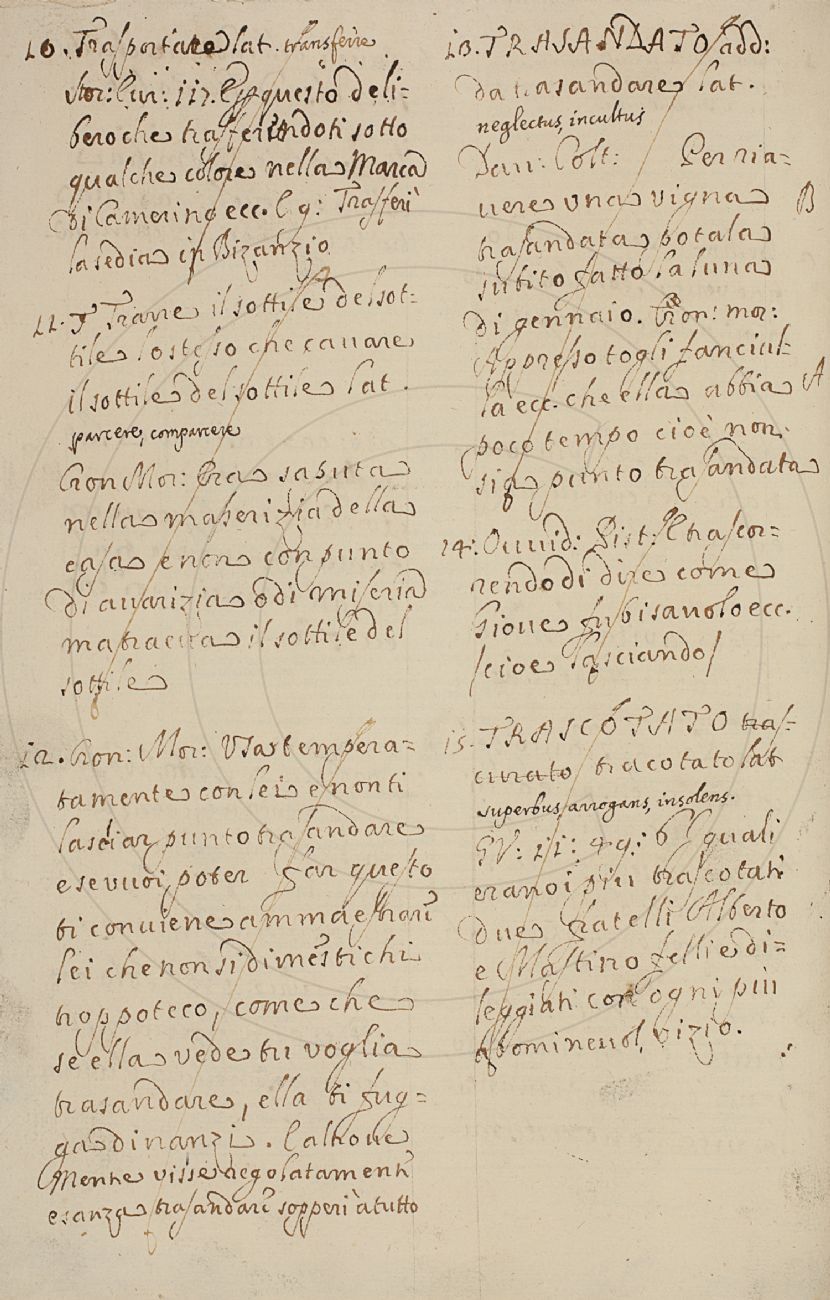 10. Trasportare lat. transferire
Stor: Eur: 117. E p questo deli=
bero che trasferendoti sotto
qualche colore nella Marca
di Camerino ecc. E g: Trasferì
la sedia in Bizanzio
11. Trarre il sottile del sot=
tile lo stesso che cavare
il sottile del sottile lat.
parcere, comparcere
Cron Mor: Era saputa
nella maserizia della
casa e non con punto
di avarizia o di miseria
ma traeva il sottile del
sottile
12. Cron: Mor: Usa tempera=
tamente con lei e non ti
lasciar punto trasandare
e se vuoi poter far questo
ti conviene ammaestrare
lei che non si dimestichi
troppo teco, come che
se ella vede tu voglia
trasandare, ella ti fug=
ga dinanzi. E altrove
Mentre visse regolatamente
e sanza trasandare sopperì a tutto
13. TRASANDATO add:
da trasandare lat.
neglectus, incultus
Dav: Colt: Per ria=
vere una vigna B
trasandata potala
subito fatto la luna
di gennaio. Cron: mor:
Appresso togli fanciul=
la ecc. che ella abbia A
poco tempo cioè non
sia punto trasandata
14. Ovvid: Pist: E trascor=
rendo di dire come
Giove fu bisavolo ecc.
/cioe lasciando/
15. TRASCOTATO tras=
curato tracotato lat
superbus, arrogans, insolens.
GV: 11: 49: 6 I quali
erano i più trascotati
due fratelli Alberto
e Mastino felli e di=
leggiati con ogni più
abominevol vizio.